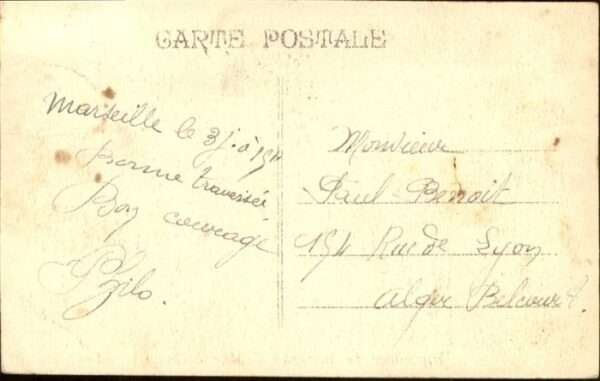 CARTE POSTALE
Marseille le
Bonne traversée
Bon courage
Monsieur
Paul Benoit
154 Rue de Lyon
Alger Belcourt